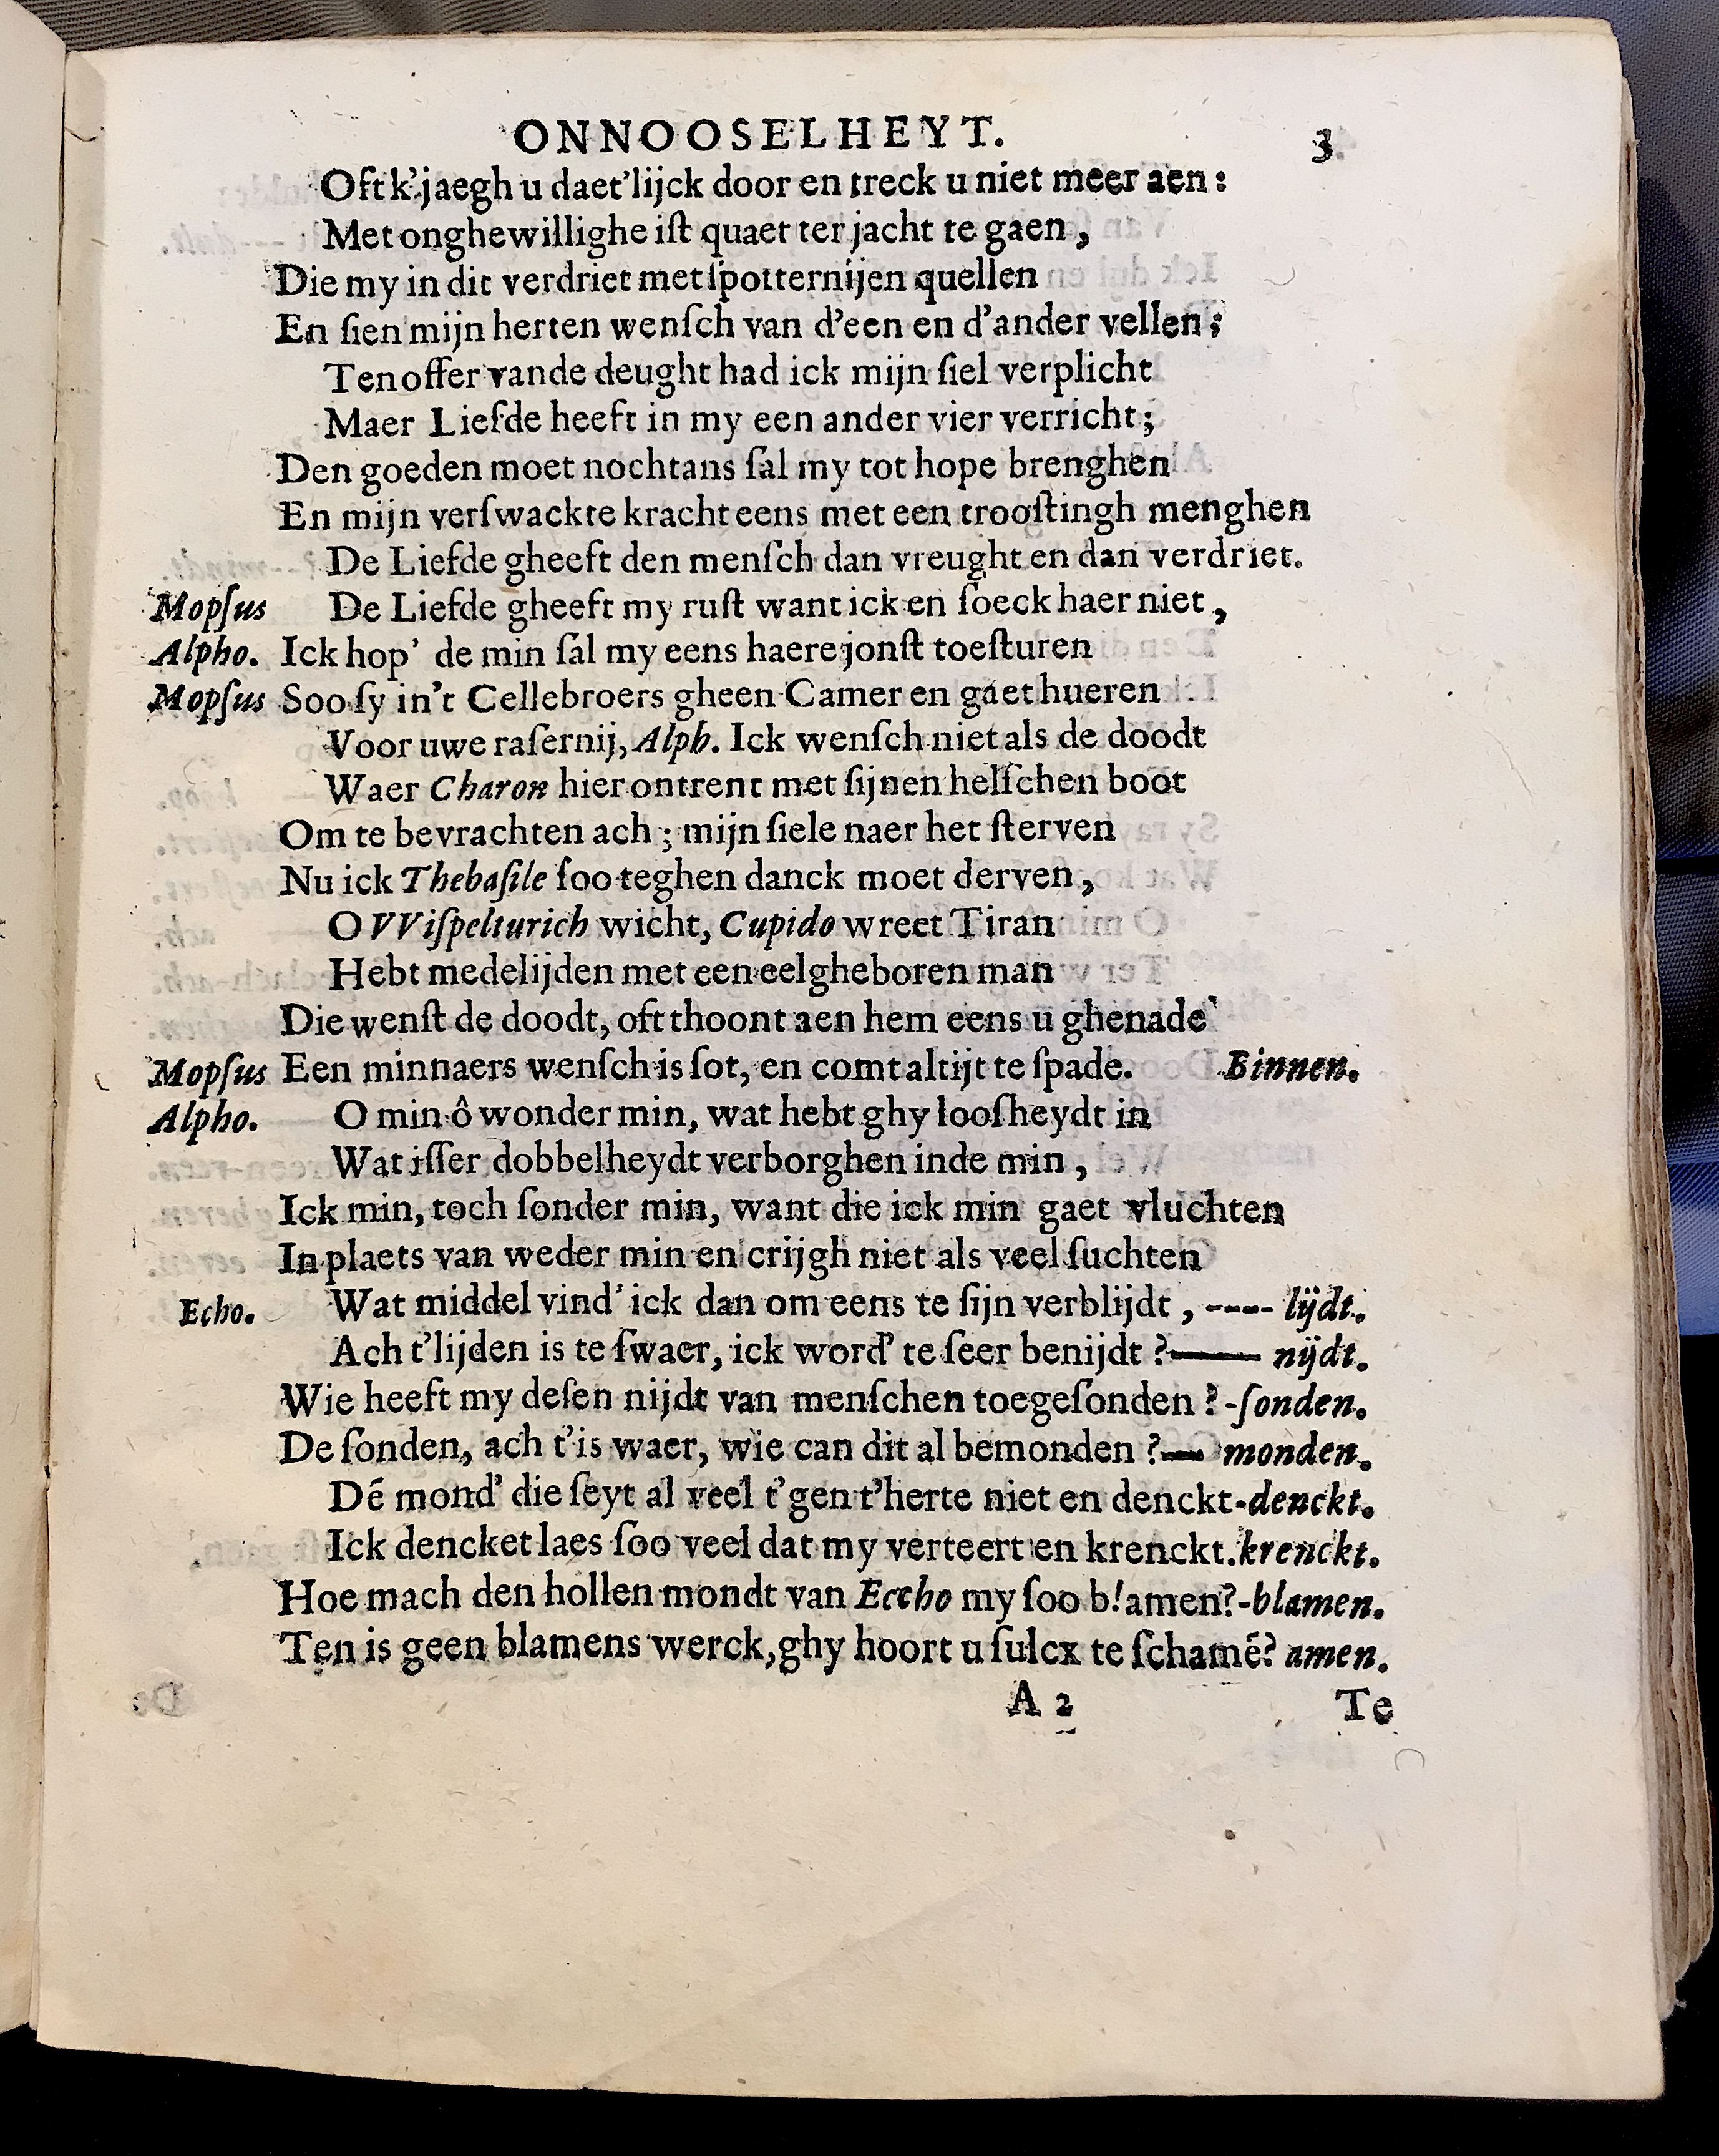 ONNOOSELHEYT. 3
Oft k'jaegh u daet'lijck door en treck u niet meer aen:
Met onghewillighe iſt quaet ter jacht te gaen,
Die my in dit verdriet met ſpotternijen quellen
En ſien mijn herten wenſch van d'een en d'ander vellen;
Ten offer vande deught had ick mijn ſiel verplicht
Maer Liefde heeft in my een ander vier verricht;
Den goeden moet nochtans ſal my tot hope brenghen
En mijn verſwackte kracht eens met een trooſtingh menghen
De Liefde gheeft den menſch dan vreught en dan verdriet.
Mopſus De Liefde gheeft my ruſt want ick en ſoeck haer niet,
Alpho. Ick hop' de min ſal my eens haere jonſt toeſturen
Mopſus Soo ſy in't Cellebroers gheen Camer en gaet hueren
Voor uwe raſernij, Alph. Ick wenſch niet als de doodt
Waer Charon hier ontrent met ſijnen helſchen boot
Om te bevrachten ach ; mijn ſiele naer het ſterven
Nu ick Thebaſile ſoo teghen danck moet derven,
O VViſpelturich wicht, Cupido wreet Tiran
Hebt medelijden met een eelgheboren man
Die wenſt de doodt, oft thoont aen hem eens u ghenade
Mopſus Een minnaers wenſch is ſot, en comt altijt te ſpade. Binnen.
Alpho. O min ô wonder min, wat hebt ghy looſheydt in
Wat iſſer dobbelheydt verborghen inde min,
Ick min, toch ſonder min, want die ick min gaet vluchten
In plaets van weder min en crijgh niet als veel ſuchten
Echo. Wat middel vind' ick dan om eens te ſijn verblijdt, ---- lijdt.
Ach t'lijden is te ſwaer, ick word' te ſeer benijdt ?—— nijdt.
Wie heeft my deſen nijdt van menſchen toegeſonden ? -ſonden.
De ſonden, ach t'is waer, wie can dit al bemonden ?— monden.
Dē mond' die ſeyt al veel t'gen t'herte niet en denckt-denckt.
Ick dencket laes ſoo veel dat my verteert en krenckt.krenckt.
Hoe mach den hollen mondt van Eccho my ſoo b!amen?-blamen.
Ten is geen blamens werck, ghy hoort u ſulcx te ſchamē? amen.
A 2 Te